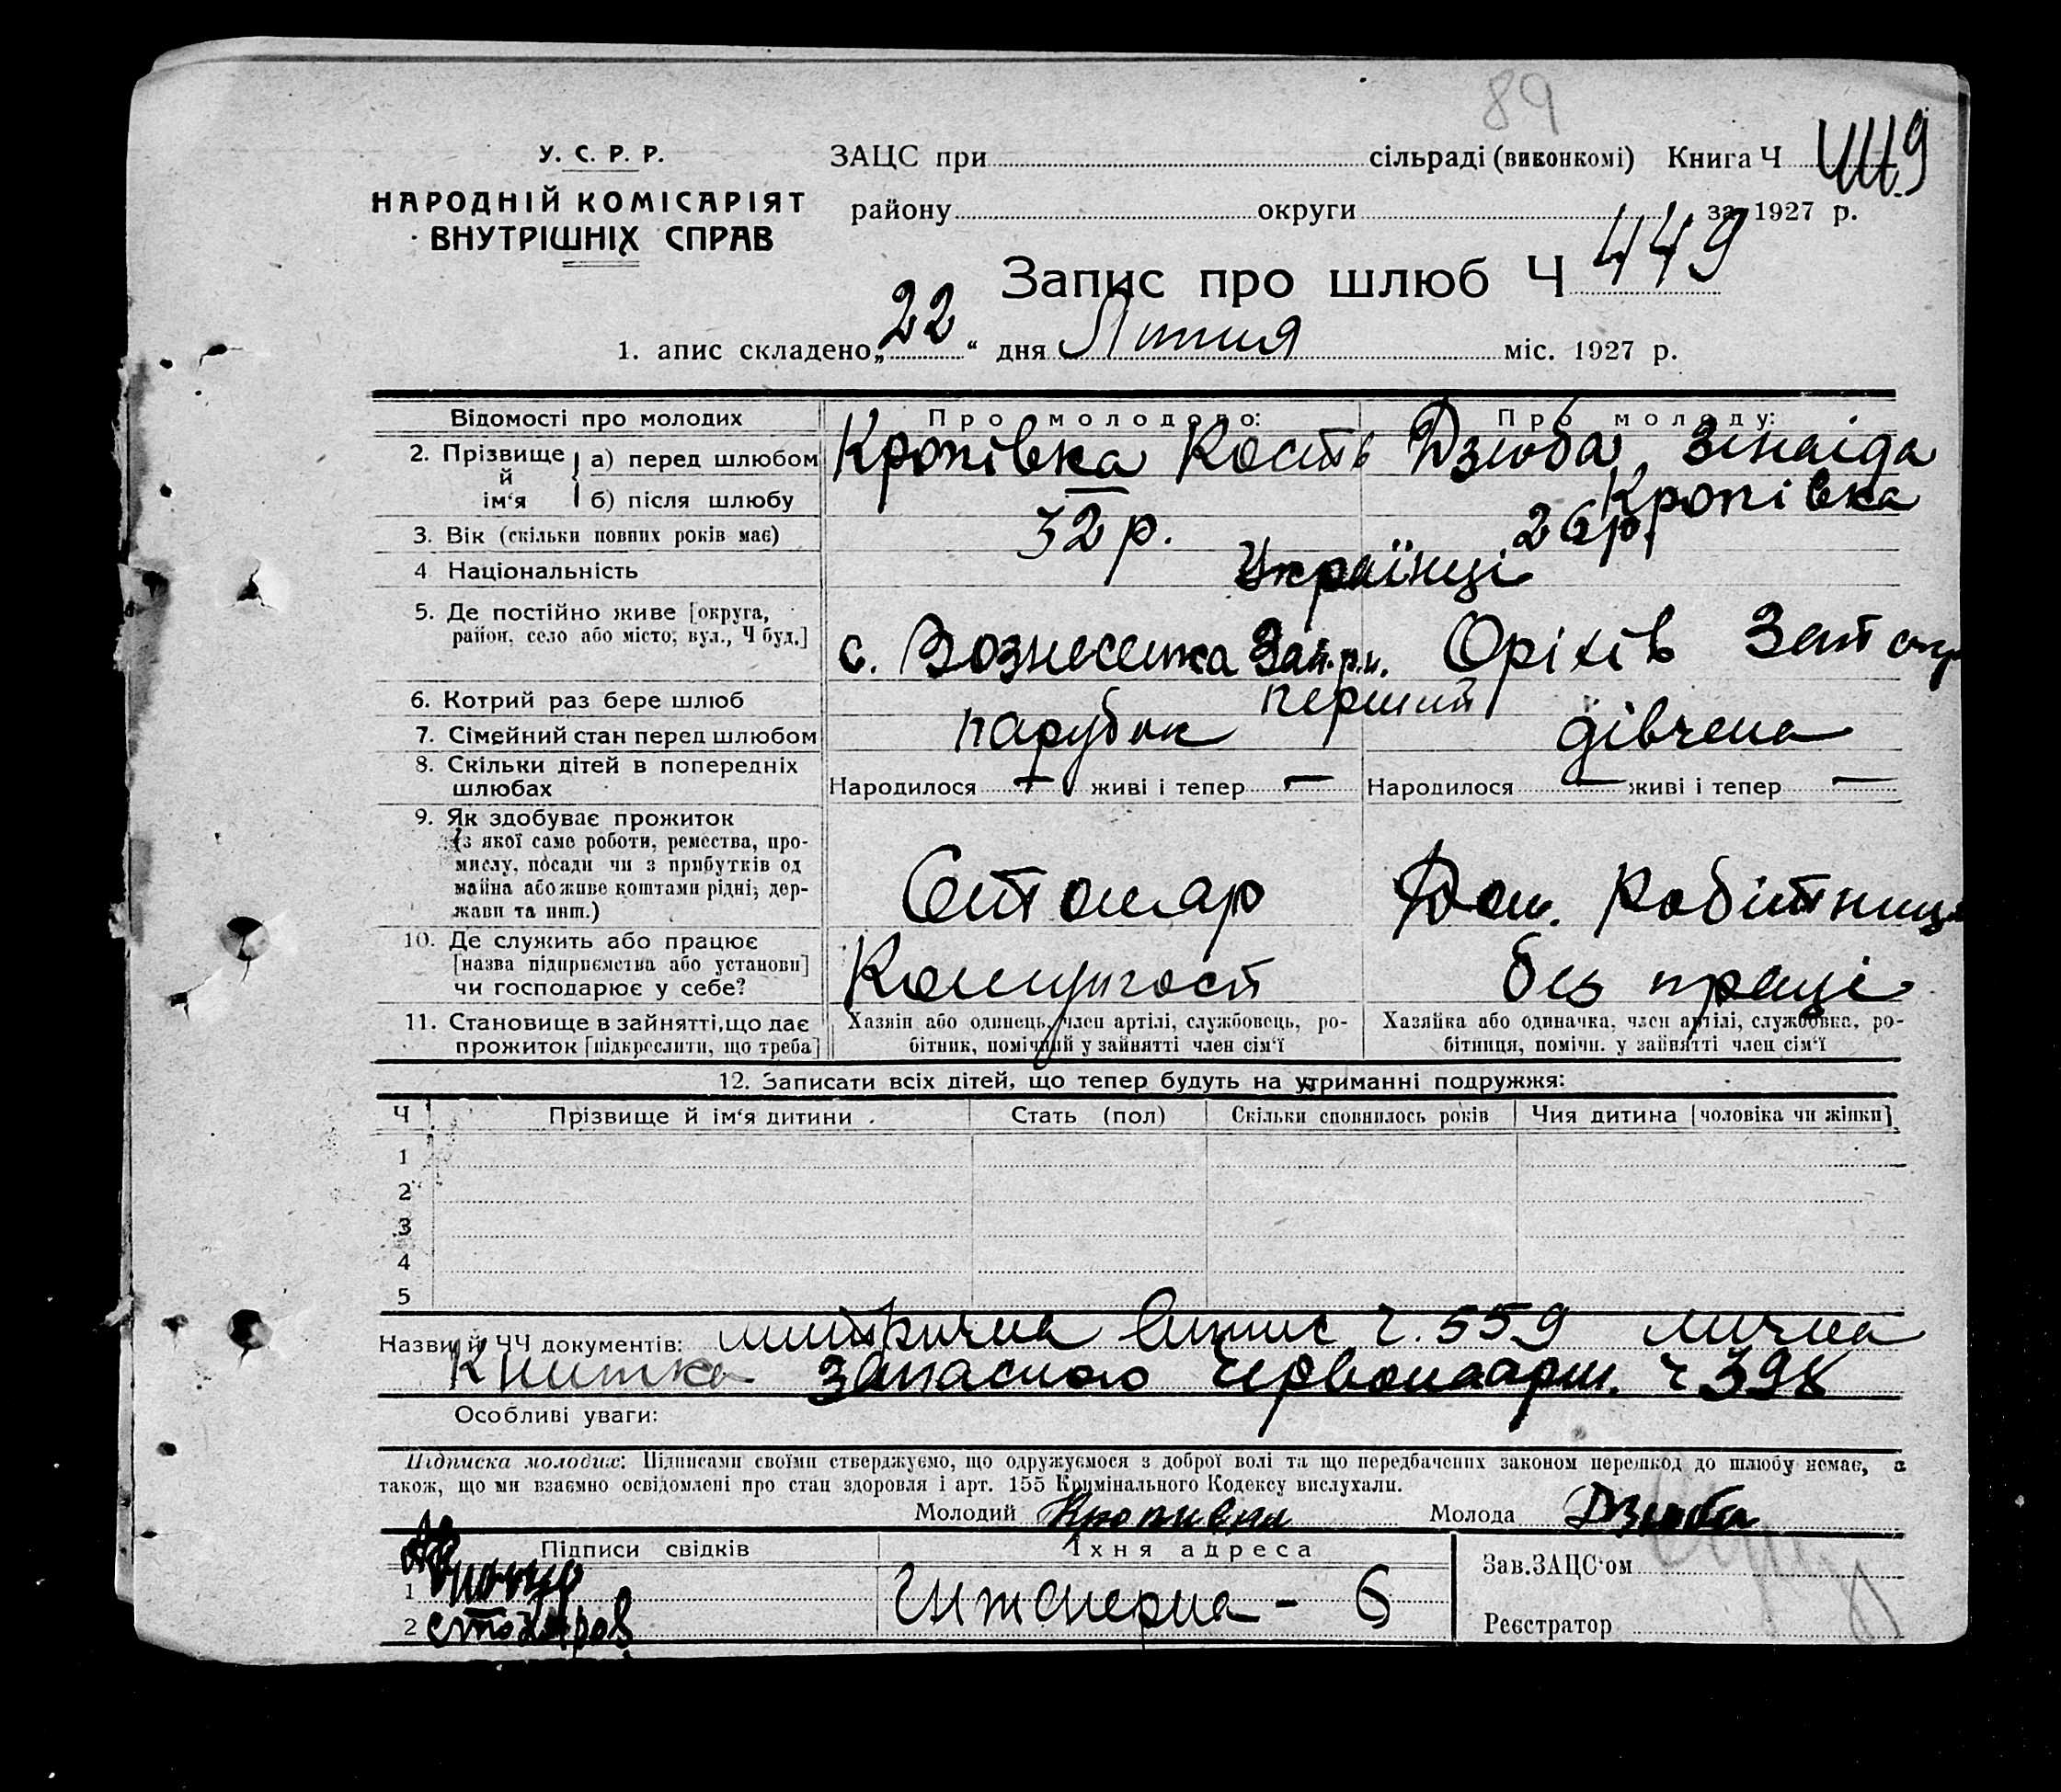 89
У. С. Р. Р.
НАРОДНІЙ КОМІСАРІЯТ
ВНУТРІШНІХ СПРАВ
ЗАЦС при сільраді (виконкомі) Книга Ч
району округи за 1927 р.
Запис про шлюб Ч 449
1. апис складено „22“ дня Липня міс. 1927 р.
Відомості про молодих Про молодого: Про молоду:
2. Прізвище й ім‘я а) перед шлюбом Кропівка Кость Дзюба Зінаіда
б) після шлюбу Кропівка
3. Вік (скільки повних років має) 32 р. 26 р.
4 Національність Українці
5. Де постійно живе [округа, район, село або місто; вул., Ч буд.] с. Вознесенка Зап. р.н. Оріхів Зап окр
6. Котрий раз бере шлюб перший
7. Сімейний стан перед шлюбом парубок дівчена
8. Скільки дітей в попередніх шлюбах Народилося — живі і тепер — Народилося — живі і тепер —
9. Як здобуває прожиток
(з якої саме роботи, ремества, про-
мислу, посади чи з прибутків од
майна або живе коштами рідні; дер-
жави та инш.) Столяр Дом. робітниця
10. Де служить або працює
[назва підприємства або установи]
чи господарює у себе? Комунгосп без праці
11. Становище в зайнятті, що дає
прожиток [підкреслити, що треба]
Хазяін або одинець, член артілі, службовець, ро-
бітник, помічний у зайнятті член сім‘ї
Хазяйка або одиначка, член артілі, службовка, ро-
бітниця, помічн. у зайнятті член сім‘ї
12. Записати всіх дітей, що тепер будуть на утриманні подружжя:
Ч Прізвище й ім‘я дитини Стать (пол) Скільки сповнилось років Чия дитина [чоловіка чи жінки]
1
2
3
4
5
Назви й ЧЧ документів: митрична випис ч. 559 лична
Книжка запасного червоноарм. ч 398
Особливі уваги:
Підписка молодих: Підписами своїми стверджуємо, що одружуємося з доброї волі та що передбачених законом перешкод до шлюбу немає, а
також, що ми взаємно освідомлені про стан здоровля і арт. 155 Кримінального Кодексу вислухали.
Молодий Кропивка Молода Дзюба
Підписи свідків Їхня адреса
Зав. ЗАЦС‘ом
1 Інженерна - 6
2
Реєстратор